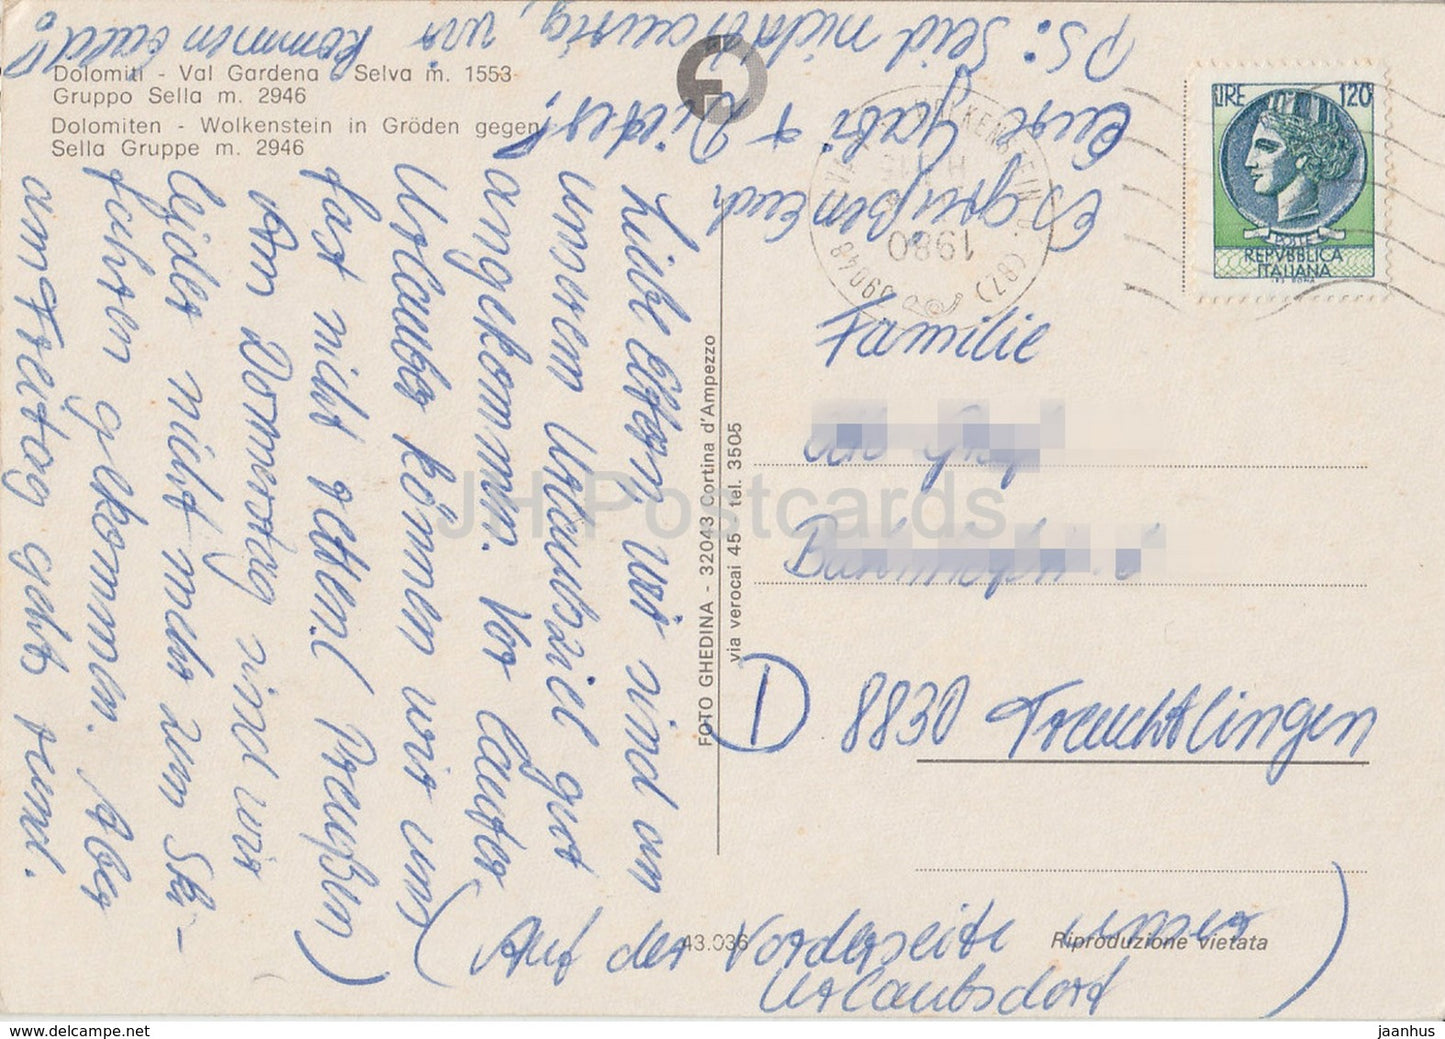 Dolomiti - Val Gardena - Selva m. 1553
Gruppo Sella m. 2946
Dolomiten - Wolkenstein in Gröden gegen
Sella Gruppe m. 2946
Liebe Eltern, wir sind an
unserem Urlaubsziel gut
angekommen. Vor lauter
Urlauber können wir uns
fast nicht retten! (Preußen)
Am Donnerstag sind wir
leider nicht mehr zum Ski-
fahren gekommen. Aber
am Freitag gehts rund.
Es grüßen Euch
Eure Gabi + Dieter!
PS: Seid nicht traurig, wir kommen bald!
(Auf der Vorderseite unser
Urlaubsdorf)
FOTO GHEDINA - 32043 Cortina d'Ampezzo
via verocai 45 tel. 3505
LIRE 120
POSTE
REPVBBLICA
ITALIANA
WOLKENSTEIN
1980
39048
(BZ)
Familie
D 8830 Treuchtlingen
43.036
Riproduzione vietata
JH Postcards
hippostcard.com/store/jhpostcards
jaanhus